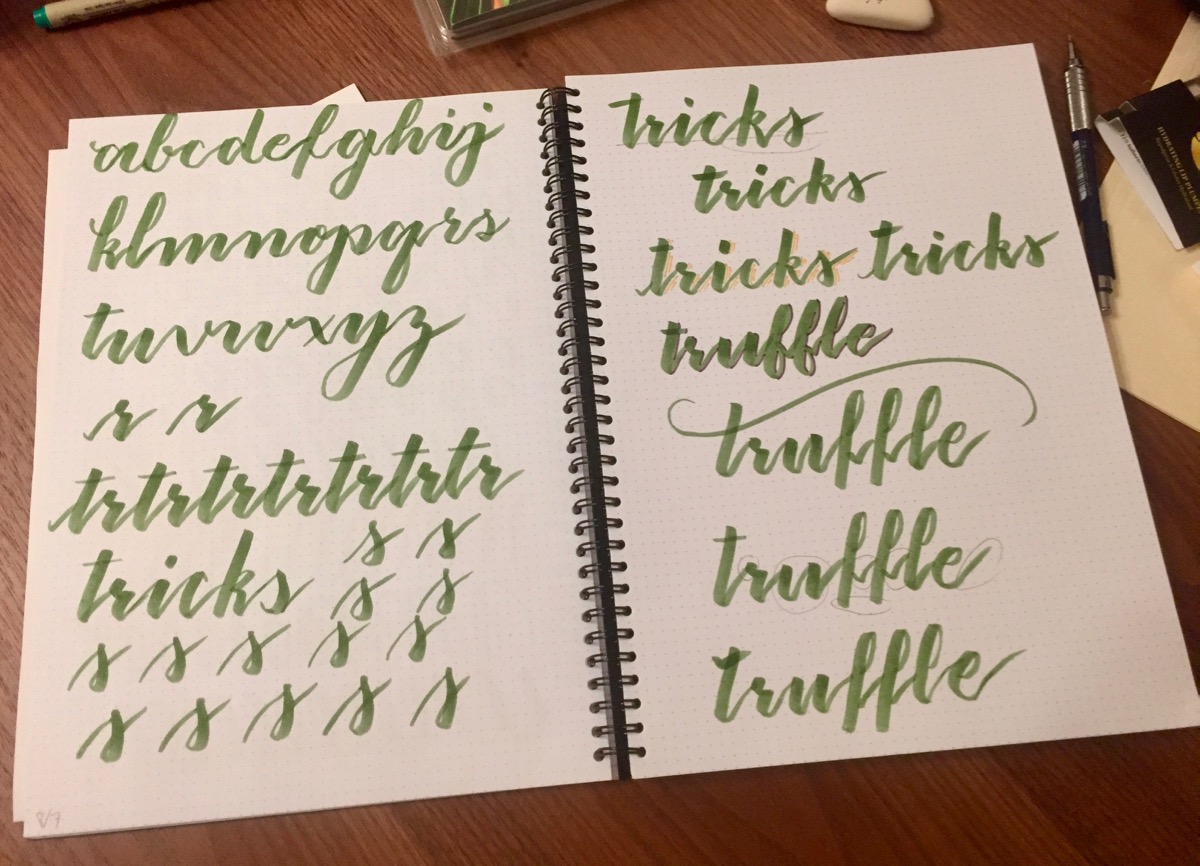 abcdefghij
klmnopqrs
tuvwxyz
r r
trtrtrtrtrtrtr
s s
tricks s s
s s s s s
s s s s s
8/7
tricks
tricks
tricks tricks
truffle
truffle
truffle
truffle
HYDRATING LIP PUMP